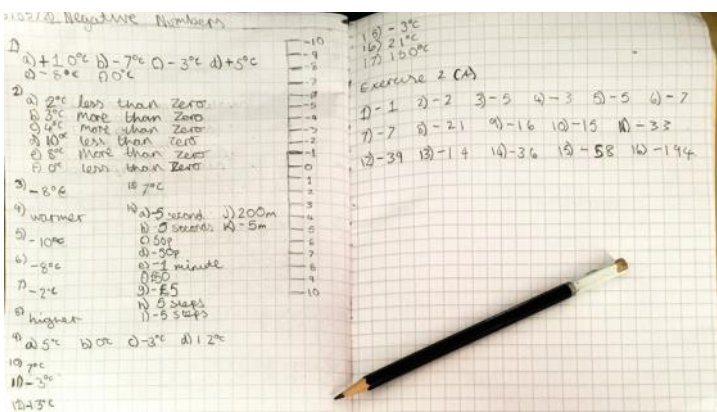 Negative Numbers
1)
a) +10°c b) -7°c c) -3°c d) +5°c
e) -8°c f) 0°c
2)
a) 2°c less than zero
b) 3°c more than zero
c) 4°c more than zero
d) 10°c less than zero
e) 8°c more than zero
f) 0°c less than zero
3) -8°c
4) warmer
5) -10°c
6) -8°c
7) -2°c
8) higher
9) a) 5°c b) 0°c c) -3°c d) 12°c
10) 7°c
11) -3°c
12) +3°c
7°c
a) -5 second
b) 5 seconds
c) 50p
d) -50p
e) -1 minute
f) £50
g) -£5
h) 5 steps
i) -5 steps
j) 200m
k) -5m
-10
-9
-8
-7
-5
-4
-3
-2
-1
0
1
2
3
4
5
6
7
8
9
10
15) -3°c
16) 21°c
17) 150°c
Exercise 2 (A)
1) -1 2) -2 3) -5 4) -3 5) -5 6) -7
7) -7 8) -21 9) -16 10) -15 11) -33
12) -39 13) -14 14) -36 15) -58 16) -194